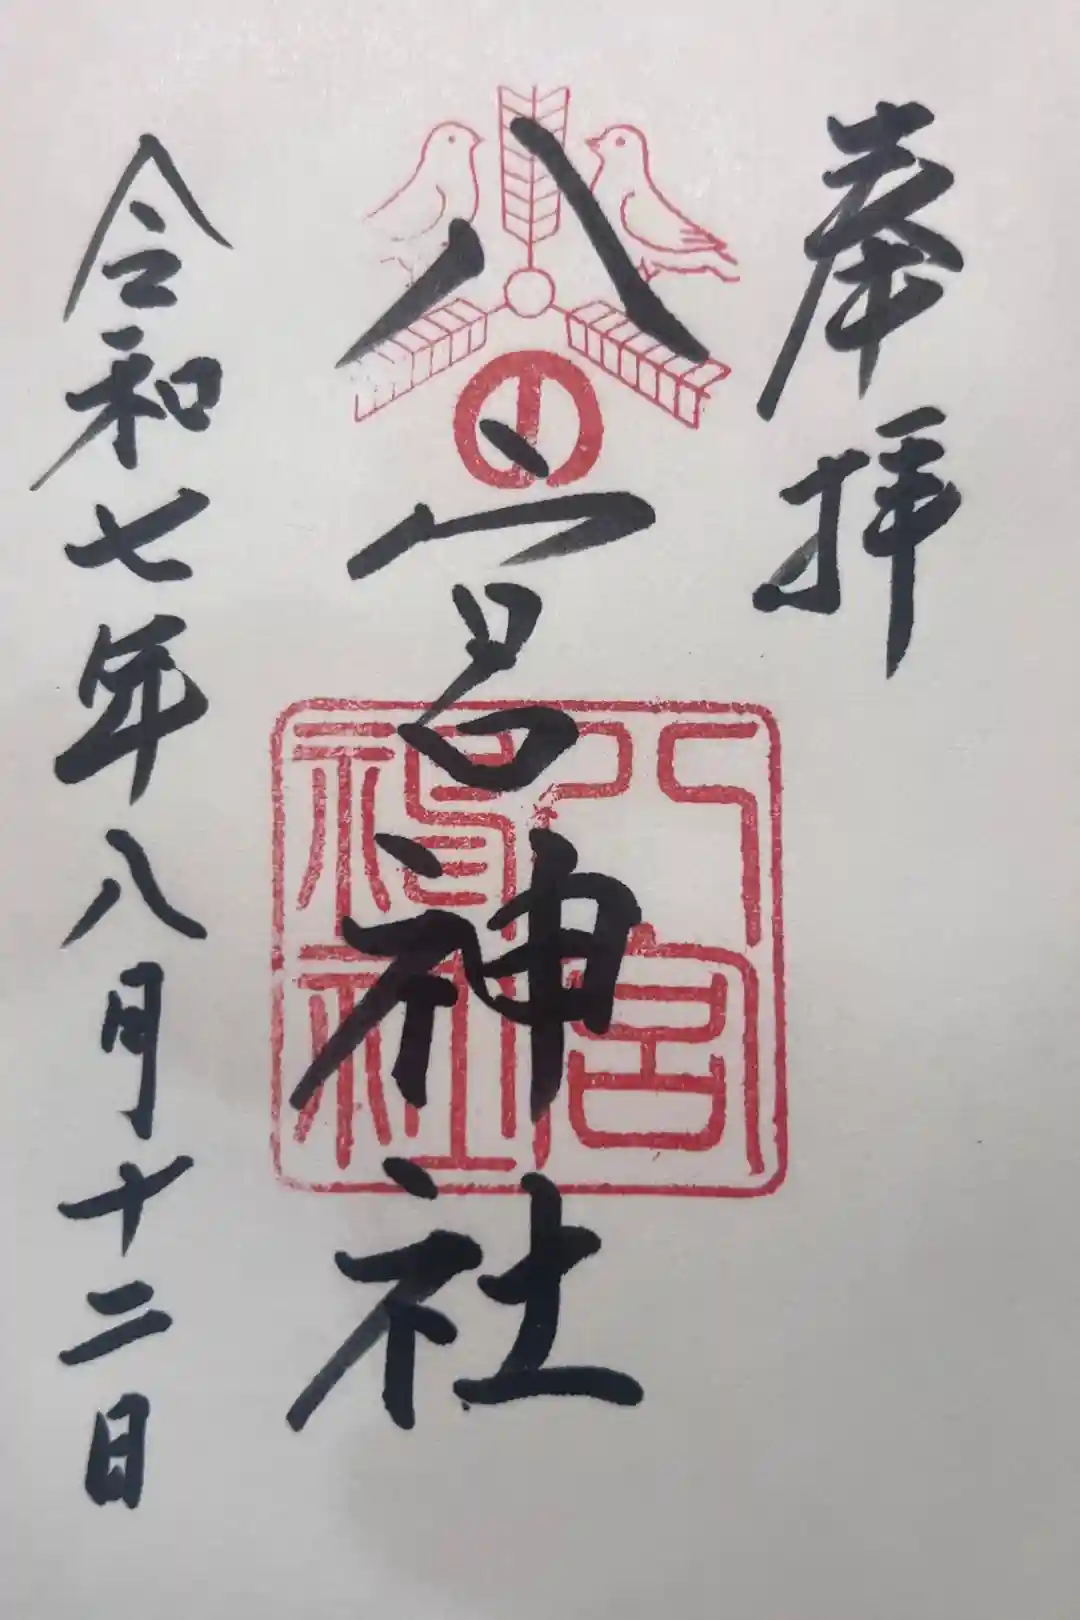 奉拝
八宮神社
八宮神社
令和七年八月十二日